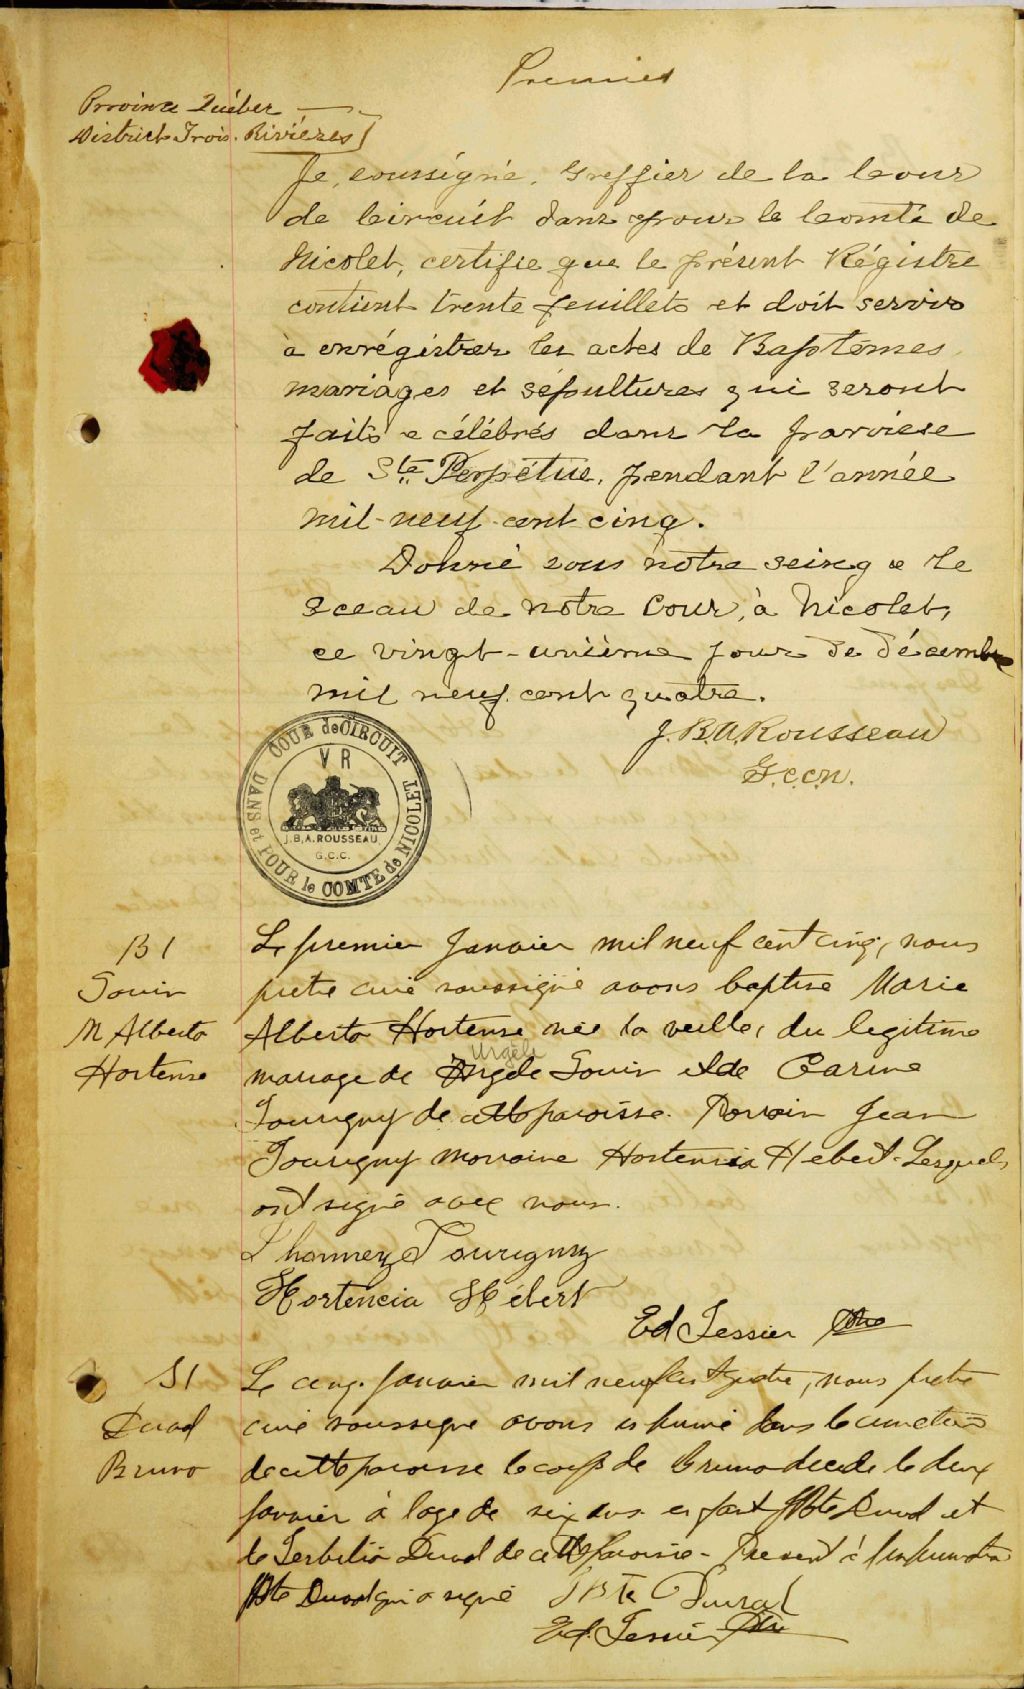 Premier
Province Québec
District Trois-Rivières
Je, soussigné, Greffier de la Cour
de Circuit dans & pour le Comté de
Nicolet, certifie que le présent Régistre
contient trente feuillets et doit servir
à enrégistrer les actes de Baptêmes
mariages et sépultures qui seront
faits & célébrés dans la paroisse
de Ste Perpétue, pendant l'année
mil-neuf-cent cinq.
Donné sous notre seing & le
Sceau de notre Cour, à Nicolet,
ce vingt-unième jour de décembre
mil neuf cent quatre.
J. B. A. Rousseau
G.C.C.N.
COUR de CIRCUIT
DANS et POUR le COMTE de NICOLET
V R
J.B.A. ROUSSEAU
G.C.C.
B 1
Gouin
M Alberta
Hortense
Le premier Janvier mil neuf cent cinq, nous
pretre curé soussigné avons baptise Marie
Alberta Hortense née la veille, du legitime
Urgèle
mariage de Gouin et de Carine
Tourigny de cette paroisse. Parrain Jean
Tourigny marraine Hortensia Hebert. Lesquels
ont signé avec nous.
Tourigny
Hortencia Hébert
Ed Tessier Ptre
S 1
Duval
Bruno
Le cinq Janvier mil neuf cent quatre, nous pretre
curé soussigne avons inhumé dans le cimetiere
de cette paroisse le corps de Bruno decede le deux
janvier à l'age de six ans enfant JBte Duval et
de Duval de cette paroisse - Present à l'inhumation
JBte Duval qui a signé JBte Duval
Ed. Tessier Ptre